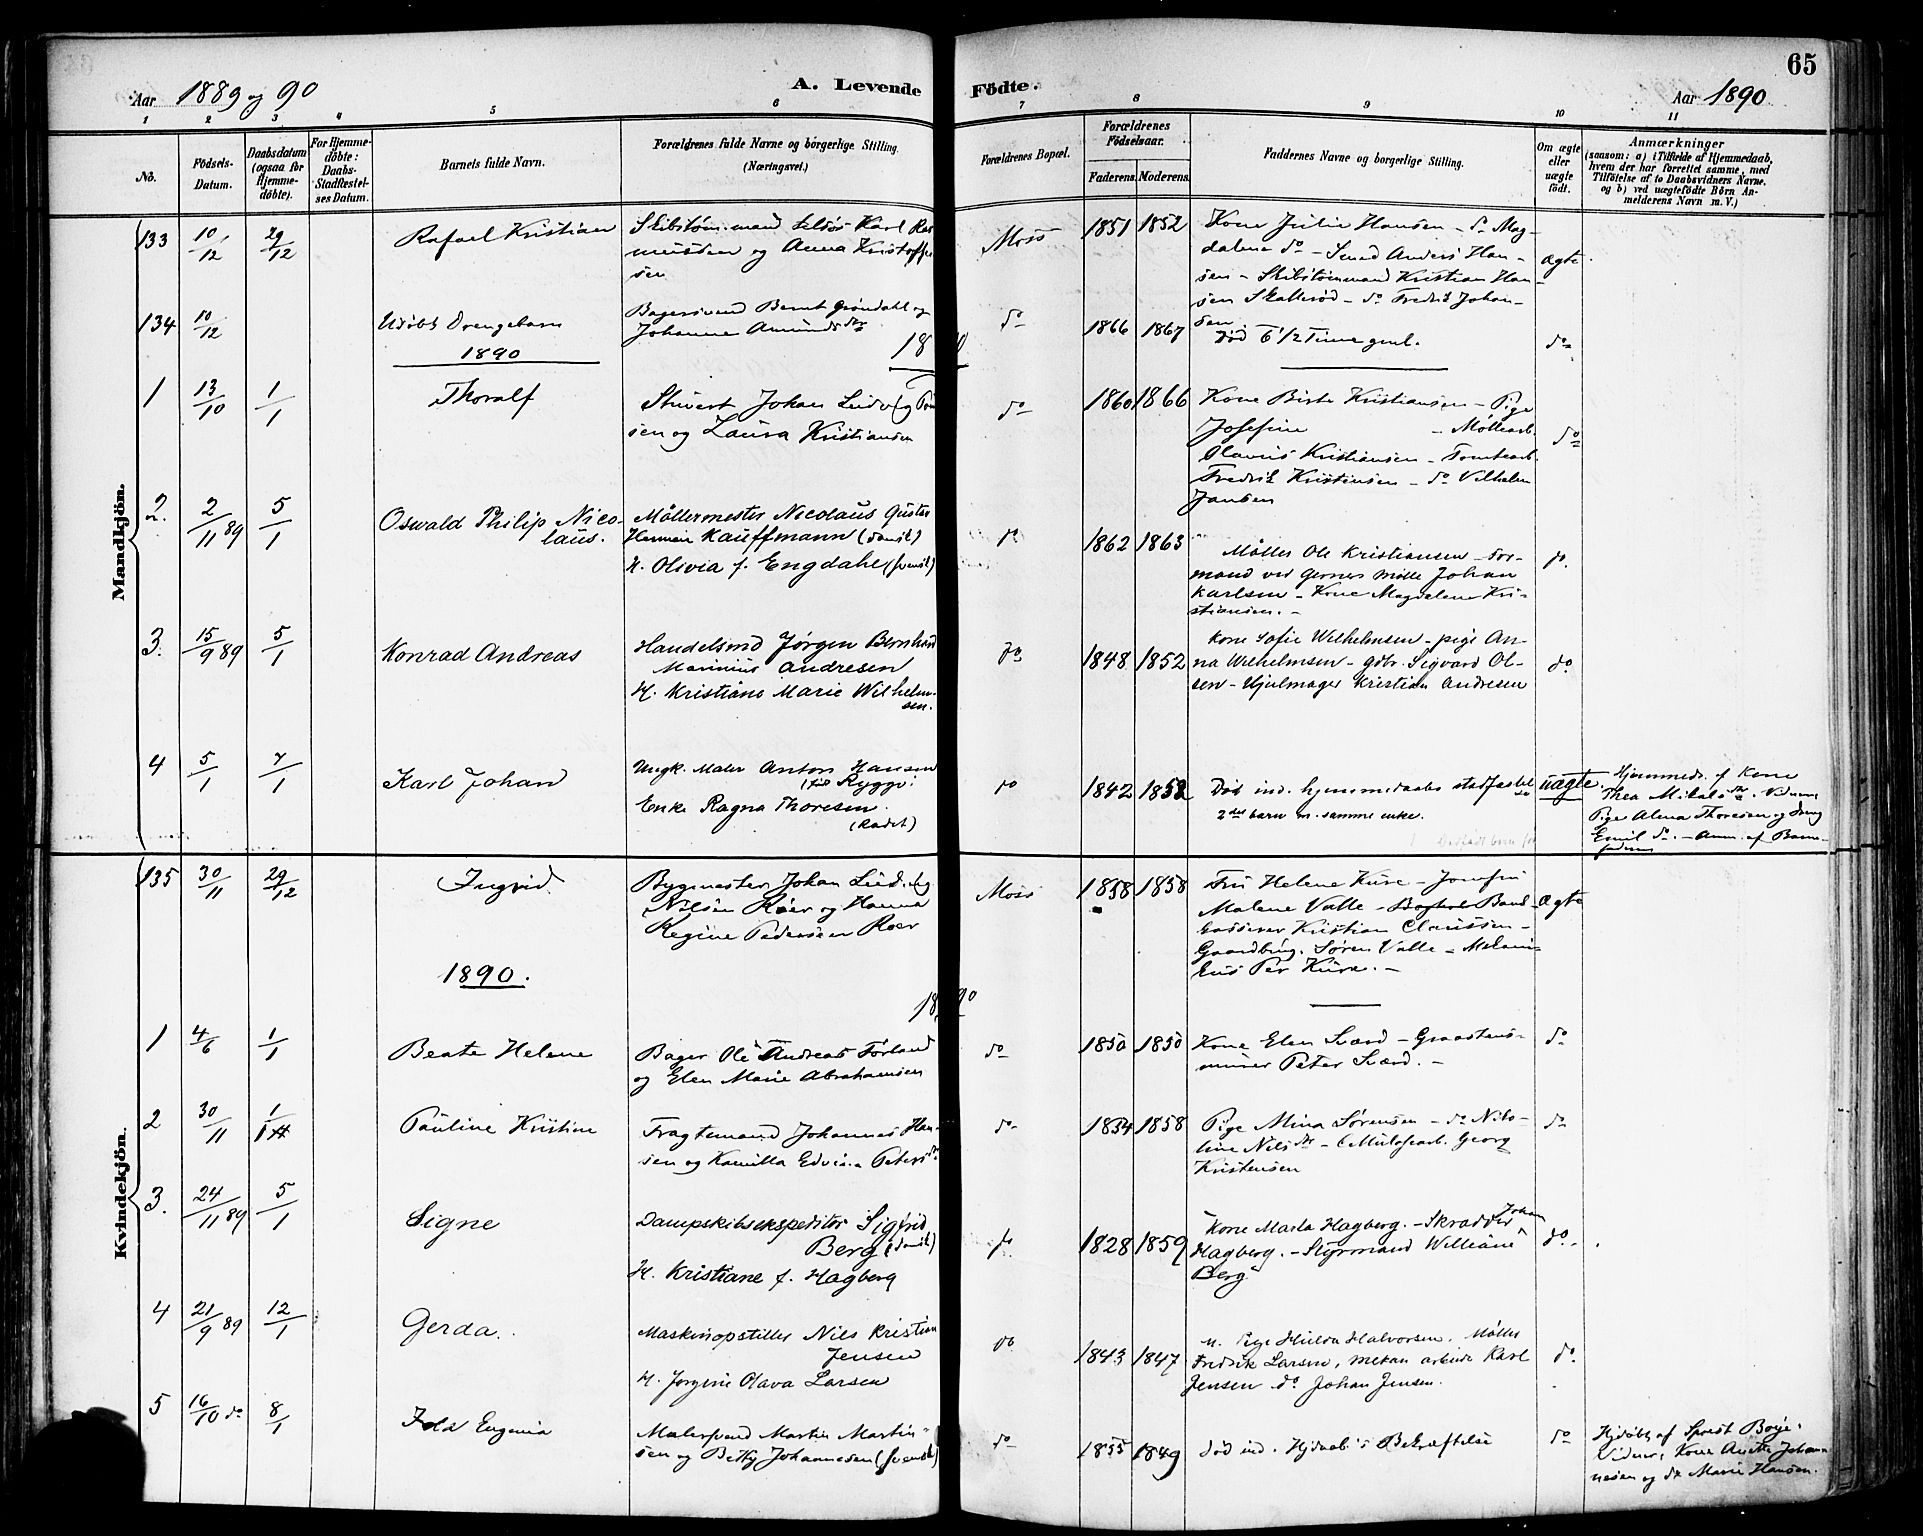 65
Aar 1889 og 90
A. Levende Fødte.
Aar 1890
1 2 3 4 5 6 7 8 9 10 11
No.
Födsels-
Datum.
Daabsdatum
(ogsaa for
Hjemme-
döbte).
For Hjemme-
döbte:
Daabs-
Stadfæstel-
ses Datum.
Barnets fulde Navn.
Forældrenes fulde Navne og borgerlige Stilling.
(Næringsvei.)
Forældrenes Bopæl.
Forældrenes
Födselsaar.
Faderens. Moderens.
Faddernes Navne og borgerlige Stilling.
Om ægte
eller
uægte
födt.
Anmærkninger
(saasom: a) i Tilfælde af Hjemmedaab,
hvem der har forrettet samme, med
Tilføielse af to Daabsvidners Navne,
og b) ved uægtefödte Börn An-
melderens Navn m. V.)
Mandkjön.
133 10/12 29/12 Rafael Kristian
Skibstømmermand Karl Ras
mussen og Anna Kristoffer
sen
Moss 1851 1852
Kone Julie Hansen - do Mag-
dalene do - Smed Anders Han-
sen - Skibstømmermand Kristian Han-
sen Skallerød - do Fredrik Johan-
sen
ægte
134 10/12 Udøbt Drengebarn
Bagersvend Bernt Grøndahl og
Johanne Amundsdtr
do 1866 1867
død 6 1/2 Time gml.
do
1890
1890
1 13/10 1/1 Thoralf
Stuert Johan Ludvig
sen og Laura Kristiansen
do 1860 1866
Kone Birte Kristiansen - Pige
Josefine - Møllearb.
Olavus Kristiansen - Tomtearb.
Fredrik Kristensen - do Vilhelm
Jansen
do
2. 2/11 89 5/1 Oswald Philip Nico-
laus.
Møllermester Nicolaus Gustav
Herman Kauffmann (dansk)
H. Olivia f. Engdahl (svensk)
do 1862 1863
Møller Ole Kristiansen - For-
mand ved Gernes Mølle Johan
Karlsen - Kone Magdalene Kri-
stiansen. -
do.
3. 15/9 89 5/1 Konrad Andreas
Handelsmd Jørgen Bernhard
Marinius Andresen
H. Kristiane Marie Wilhelm-
sen.
do 1848 1852
Kone Sofie Wilhelmsen - pige An-
na Wilhelmsen - gdbr. Sigvard Ol-
sen - Hjulmager Kristian Andresen
do.
4 5/1 7/1 Karl Johan
Ungk. Maler Anton Hansen
(til Rygge)
Enke Ragna Thoresen.
(Rødet)
do 1842 1852
Død ind. hjemmedaabs stadfæstelse
2det barn m. samme enke.
uægte.
Hjemmed. af Kone
Thea Mikalsdtr. Vidner
Pige Alma Thoresen og Dreng
Emil do. - Anm. af Barne-
faderen
Kvindekjön.
135 30/11 29/12 Ingrid.
Bygmester Johan Ludvig
Nilsen Roer og Hanna
Regine Pedersen Roer
Moss 1858 1858
Fru Helene Kure - Jomfru
Malene Valle - Bank-
kasserer Kristian Claussen -
Gaardbrug. Søren Valle - Mekani-
kus Per Kure. -
ægte
1890.
1890
1 4/6 1/1 Beate Helene
Bager Ole Andreas Førland
og Elen Marie Abrahamsen
do 1850 1850
Kone Elen Sværd - Graastens-
murer Peter Sværd. -
do
2 30/11 1/1 Pauline Kristine
Fragtemand Johannes Han-
sen og Kamilla Edvina Petersdtr
do 1834 1858
Pige Mina Sørensen - do Nils-
line Nilsdtr - Georg
Kristensen
do
3. 24/11 89 5/1 Signe
Dampskibsekspeditør Sigfrid
Berg (dansk)
H. Kristiane f. Hagberg
do 1828 1859
Kone Marta Hagberg. - Skrædder Johan
Hagberg. - Styrmand Williane
Berg
do.
4 21/9 89 12/1 Gerda.
Maskinopstiller Nils Kristian
Jensen
H. Jørgine Olava Larsen
do 1843 1847
Pige Hulda Halvorsen. Møller
Fredrik Larsen, mekan arbeider Karl
Jensen do Johan Jensen.
do.
5 16/10 do 8/1 Eugenia
Malersvend Martin Martin-
sen og Betty Johannesen (svensk)
do 1855 1849
død ind. Hjdaab's Bekræftelse
do
Hjdøbt af Sprest Boye.
Vidner, Kone Anette Johan-
nesen og do Marie Hansen.